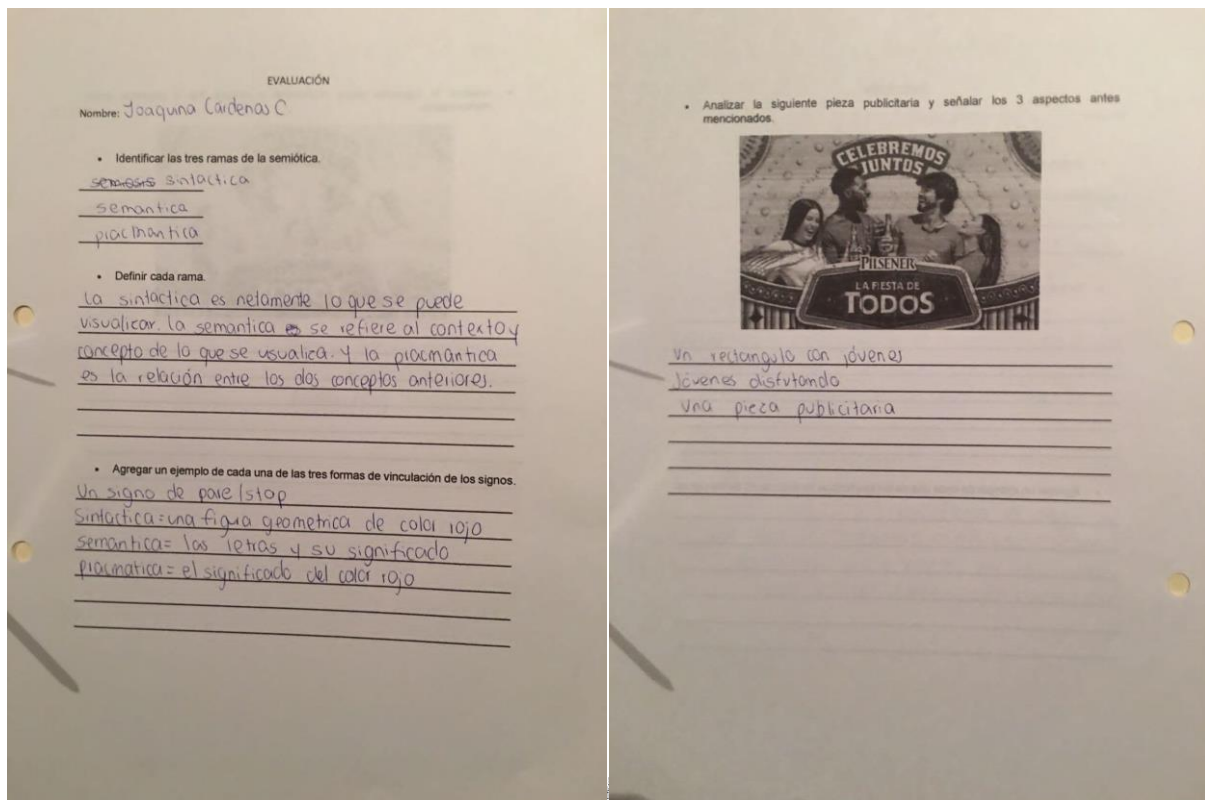 EVALUACIÓN
Nombre: Joaquina Cárdenas C
• Identificar las tres ramas de la semiótica.
semiosis sintactica
semantica
pracmantica
• Definir cada rama.
La sintactica es netamente lo que se puede
visualicar. la semantica es se refiere al contexto y
concepto de lo que se usualica. y la pracmántica
es la relación entre los dos conceptos anteriores.
• Agregar un ejemplo de cada una de las tres formas de vinculación de los signos.
Un signo de pare/stop
Sintactica = una figura geometrica de color rojo
semantica = las letras y su significado
pracmatica = el significado del color rojo
• Analizar la siguiente pieza publicitaria y señalar los 3 aspectos antes
mencionados.
CELEBREMOS
JUNTOS
PILSENER
LA FIESTA DE
TODOS
Un rectangulo con jóvenes
Jóvenes disfutando
Una pieza publicitaria